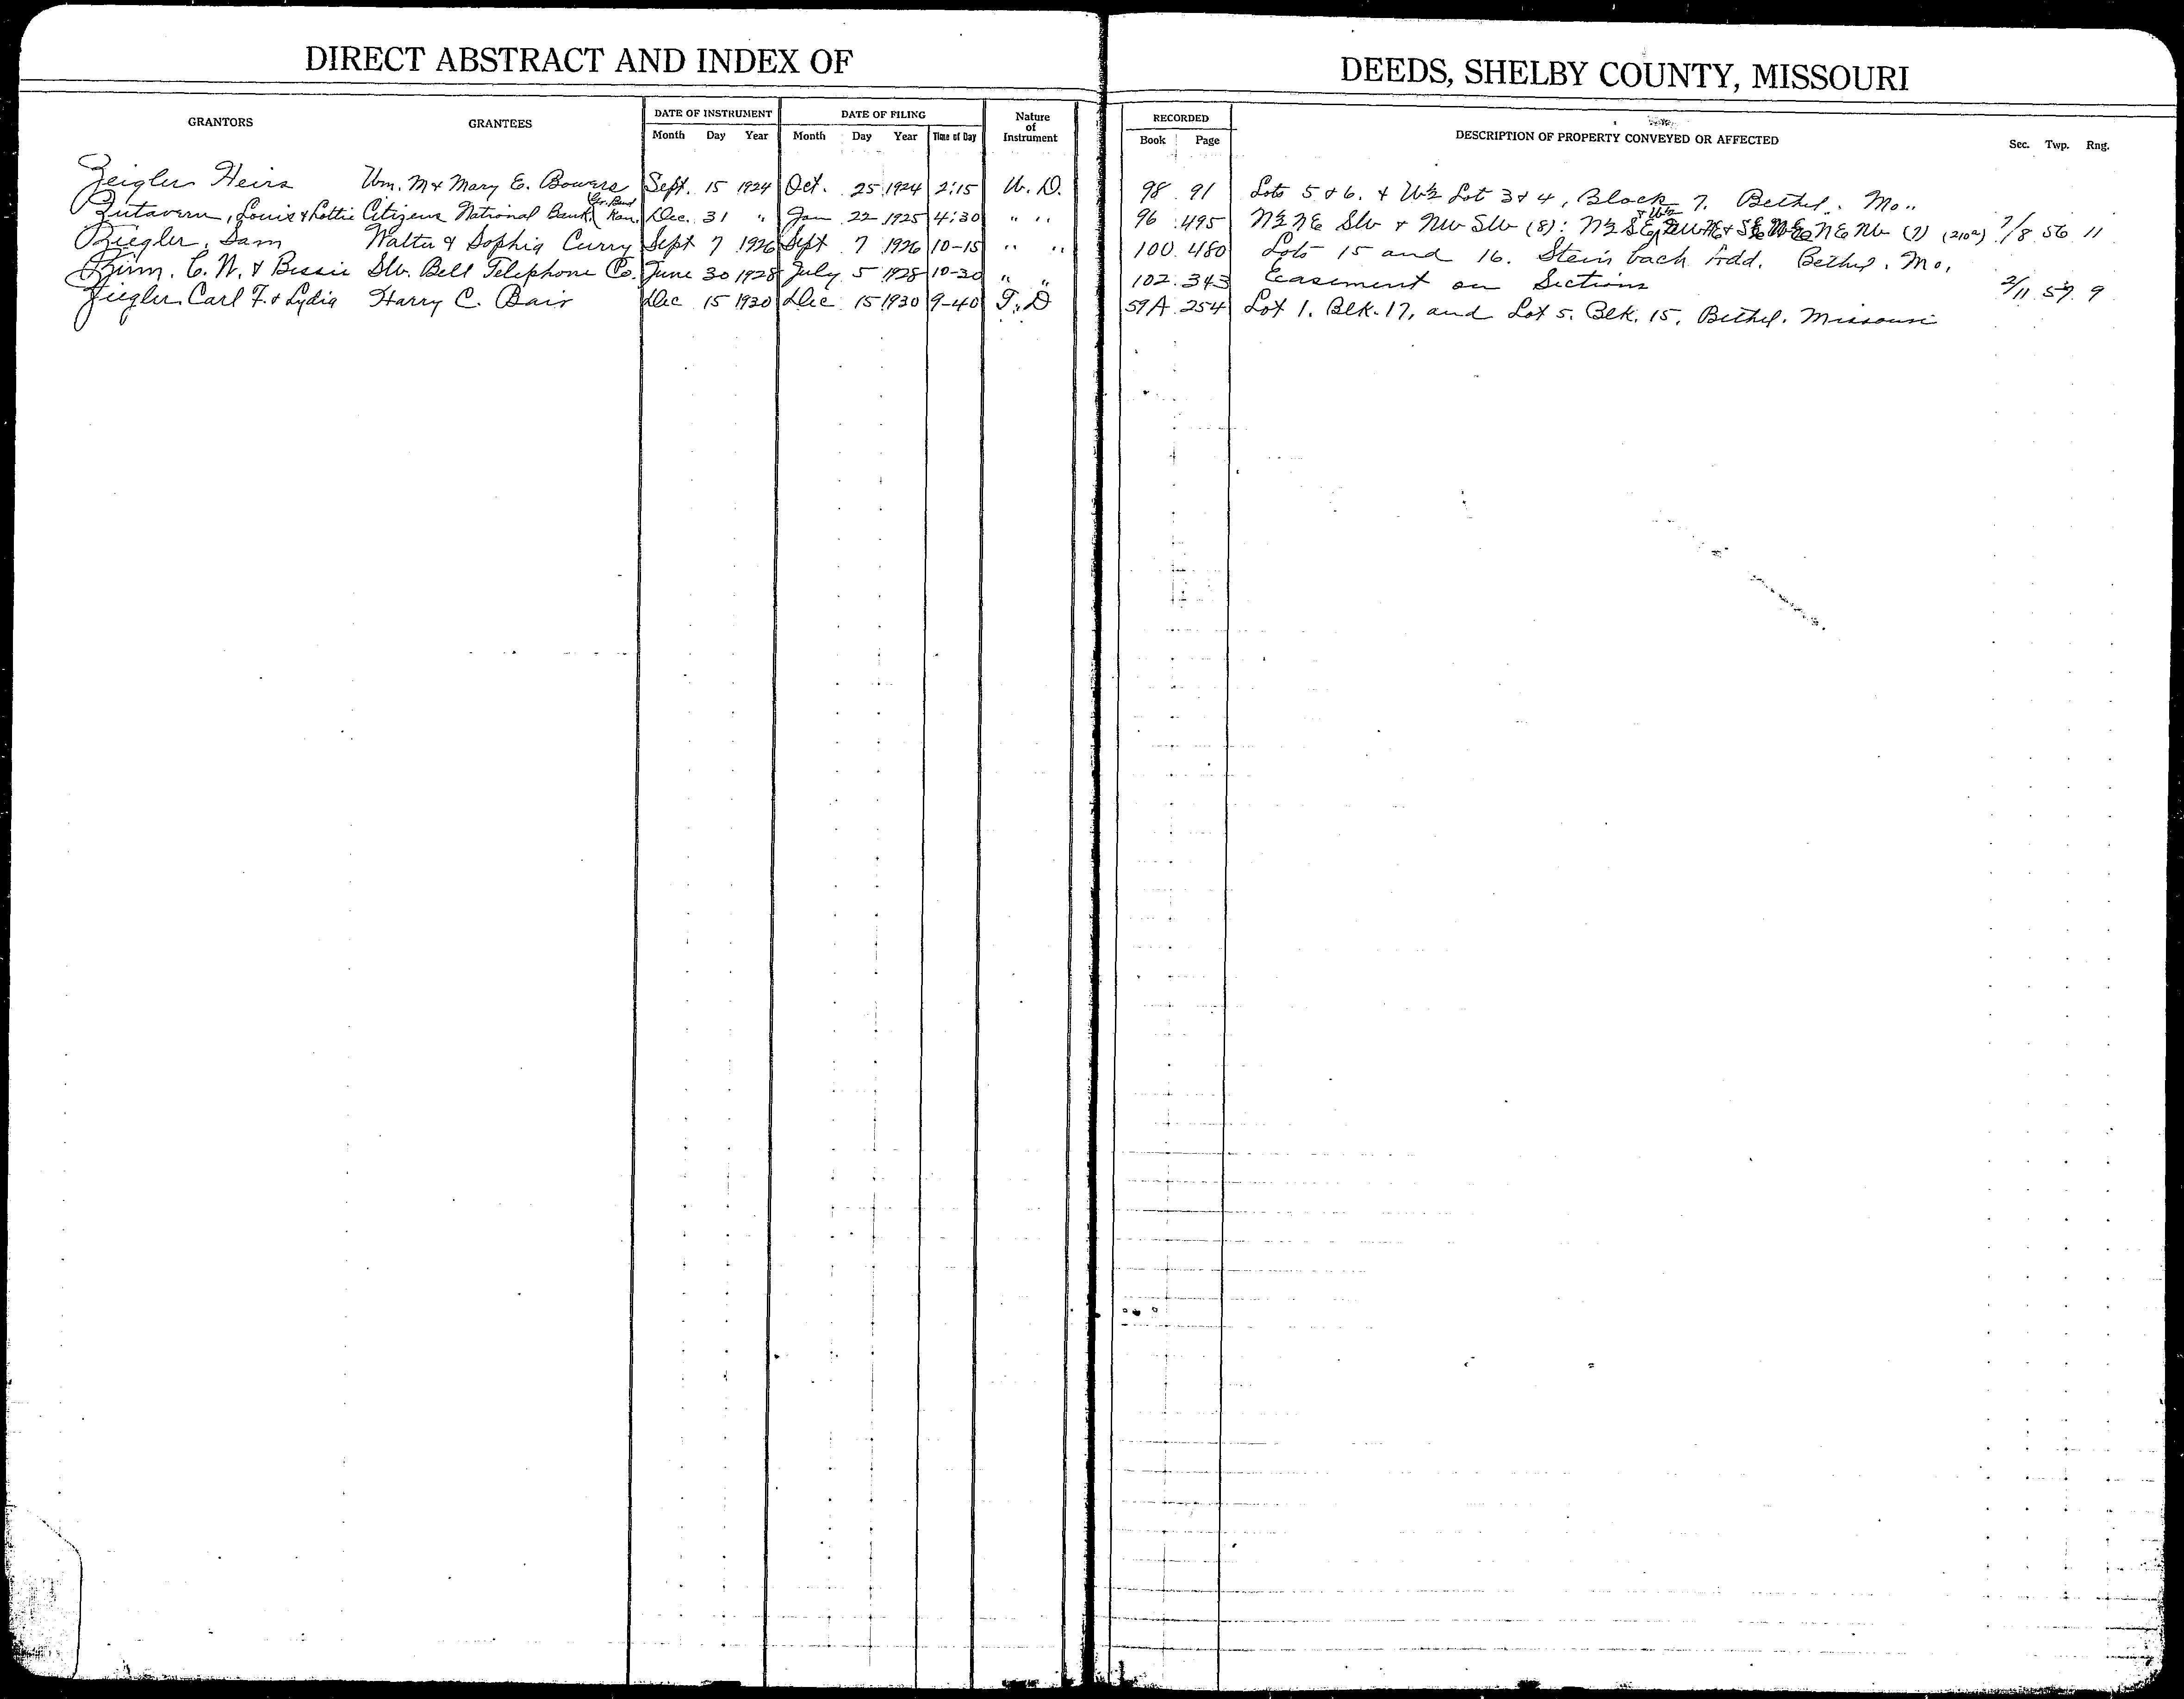 DIRECT ABSTRACT AND INDEX OF DEEDS, SHELBY COUNTY, MISSOURI
GRANTORS GRANTEES DATE OF INSTRUMENT Month Day Year DATE OF FILING Month Day Year Time of Day Nature of Instrument RECORDED Book Page DESCRIPTION OF PROPERTY CONVEYED OR AFFECTED Sec. Twp. Rng.
Zeigler Heirs Wm. M & Mary E. Bowers Sept. 15 1924 Oct. 25 1924 2:15 W. D. 98 91 Lots 5 & 6. & W½ Lot 3 & 4, Block 7. Bethel. Mo..
Zutavern, Louis & Lottie Citizens National Bank, Kan. Dec. 31 " Jan 22 1925 4:30 " " 96 495 N½ NE SW & NW SW (8): N½ SE NE NW (7) (210a) 7/8 56 11
Ziegler, Sam Walter & Sophia Curry Sept 7 1926 Sept 7 1926 10-15 " " 100 480 Lots 15 and 16. Steinbach Add. Bethel. Mo.
Zirm. C. N. & Bessie SW. Bell Telephone Co. June 30 1928 July 5 1928 10-30 " " 102 343 Easement on Sections 2/11 57 9
Ziegler Carl F. & Lydia Harry C. Bair Dec 15 1930 Dec 15 1930 9-40 T. D 59A 254 Lot 1. Blk. 17, and Lot 5. Blk. 15, Bethel. Missouri